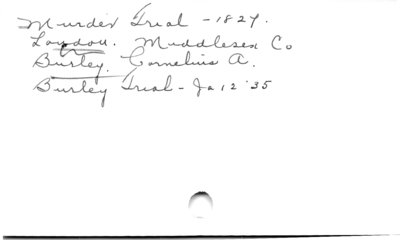 Murder Trial - 1829.
London. Middlesex Co
Burley, Cornelius A.
Burley Trial - Ja 12 '35